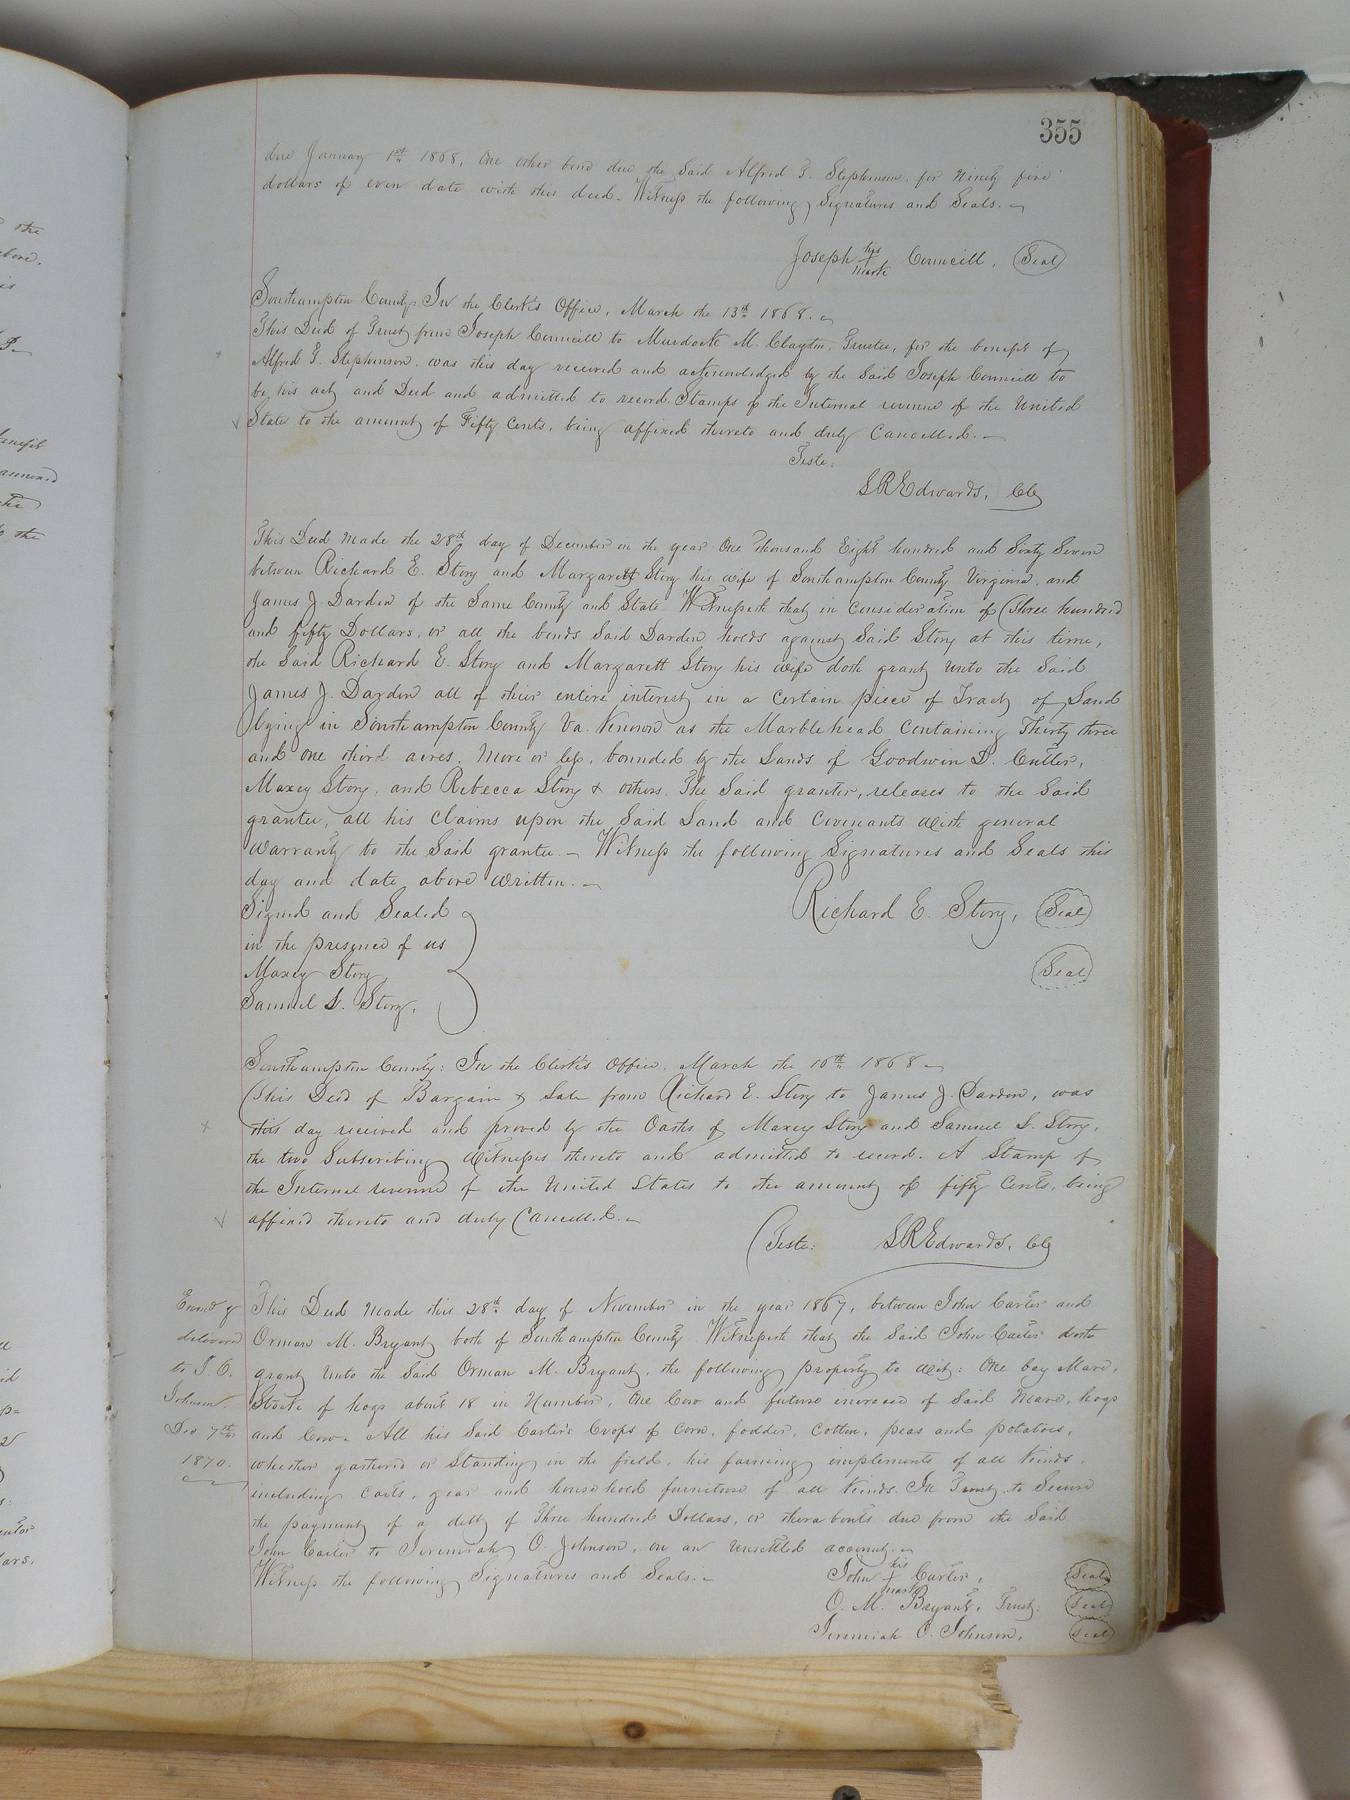 355
due January 1st 1868, One other bond due the Said Alfred G. Stephenson, for Ninety five
dollars of even date with this deed. Witness the following Signatures and Seals.
Joseph his + mark Councill. Seal
Southampton County: In the Clerk's Office, March the 13th 1868.
This Deed of Trust from Joseph Councill to Murdock M. Clayton, Trustee, for the benefit of
Alfred G. Stephenson, was this day received and acknowledged by the Said Joseph Councill to
be his act and Deed and admitted to record. Stamps of the Internal revenue of the United
States to the amount of Fifty Cents, being affixed thereto and duly Cancelled.
Teste:
L R Edwards, Clk
This Deed made the 28th day of December in the year One thousand Eight hundred and Sixty Seven
between Richard E. Story and Margarett Story his wife of Southampton County Virginia, and
James J. Darden of the Same County and State. Witnesseth that in Consideration of Three hundred
and fifty Dollars, or all the bonds Said Darden holds against Said Story at this time,
the Said Richard E. Story and Margarett Story his wife doth grant unto the Said
James J. Darden all of their entire interest in a Certain piece of Tract of Land
lying in Southampton County Va. Known as the Marblehead Containing Thirty three
and one third acres, More or less, bounded by the Lands of Goodwin D. Cutler,
Maxey Story, and Rebecca Story & others. The Said grantor, releases to the Said
grantee, all his Claims upon the Said Land and Covenants with general
Warranty to the Said grantee. Witness the following Signatures and Seals this
day and date above written.
Signed and Sealed
in the presence of us
Maxey Story
Samuel L. Story.
Richard E. Story, Seal
Seal
Southampton County: In the Clerk's Office, March the 16th 1868
This Deed of Bargain & Sale from Richard E. Story to James J. Darden, was
this day received and proved by the Oaths of Maxey Story and Samuel L. Story,
the two Subscribing Witnesses thereto and admitted to record. A Stamp of
the Internal revenue of the United States to the amount of fifty Cents, being
affixed thereto and duly Cancelled.
Teste: L R Edwards, Clk
Exam'd &
delivered
to J. O.
Johnson.
Dec 7th
1870.
This Deed made this 28th day of November in the year 1867, between John Carter and
Orman M. Bryant both of Southampton County Witnesseth that the Said John Carter doth
grant Unto the Said Orman M. Bryant, the following property to wit: One bay Mare,
Stock of hogs about 18 in Number, One Cow and future increase of Said Mare, hogs
and Cow. All his Said Carter's Crops of Corn, fodder, Cotton, peas and potatoes,
whether gathered or Standing in the field, his farming implements of all Kinds,
including Carts, gear and household furniture of all Kinds. In Trust to Secure
the payment of a debt of Three hundred Dollars, or thereabouts due from the Said
John Carter to Jeremiah O. Johnson, on an unsettled account.
Witness the following Signatures and Seals.
John his + mark Carter, Seal
O. M. Bryant, Trust: Seal
Jeremiah O. Johnson, Seal